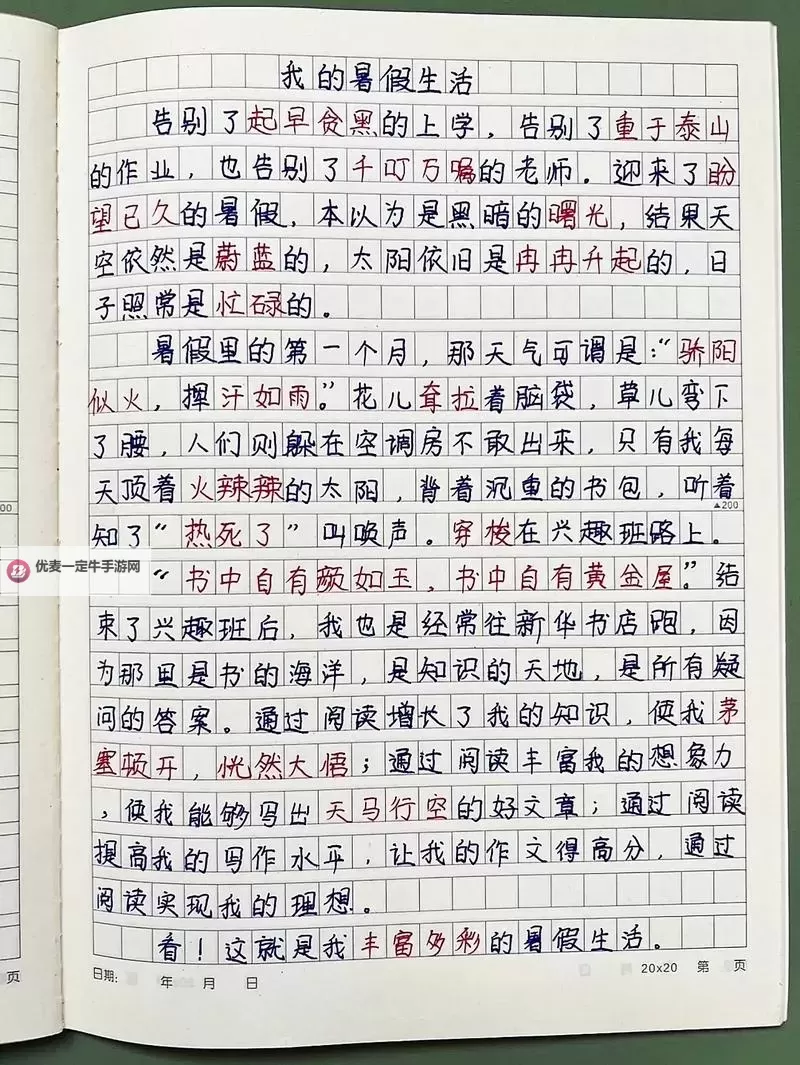 我的暑假生活
告别了起早贪黑的上学，告别了重于泰山
的作业，也告别了千叮万嘱的老师。迎来了盼
望已久的暑假，本以为是黑暗的曙光，结果天
空依然是蔚蓝的，太阳依旧是冉冉升起的，日
子照常是忙碌的。
暑假里的第一个月，那天气可谓是：“骄阳
似火，挥汗如雨”。花儿耷拉着脑袋，草儿弯下
了腰，人们则躲在空调房不敢出来，只有我每
天顶着火辣辣的太阳，背着沉重的书包，听着
▲200
知了“热死了”叫唤声。穿梭在兴趣班路上。
“书中自有颜如玉，书中自有黄金屋”。结
束了兴趣班后，我也是经常往新华书店跑，因
为那里是书的海洋，是知识的天地，是所有疑
问的答案。通过阅读增长了我的知识，使我茅
塞顿开，恍然大悟；通过阅读丰富我的想象力
，使我能够写出天马行空的好文章；通过阅读
提高我的写作水平，让我的作文得高分，通过
阅读实现我的理想。
看！这就是我丰富多彩的暑假生活。
日期： 年 月 日 20x20 第 页
页
00
优麦一定牛手游网